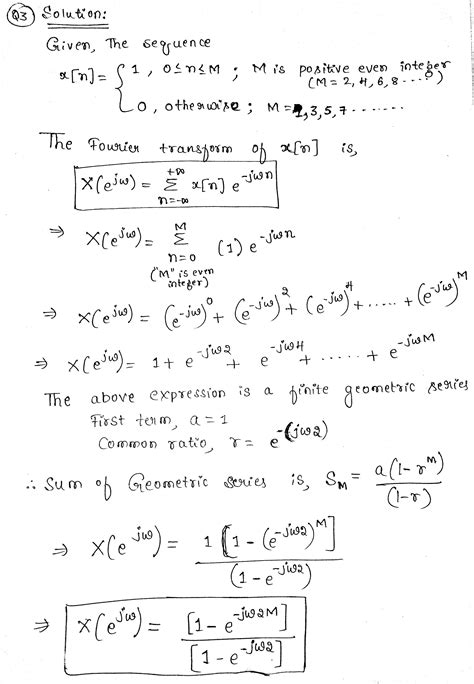 Q3 Solution:
Given, The sequence
x[n] = { 1 , 0≤n≤M ; M is positive even integer
(M = 2, 4, 6, 8 ....)
0, otherwise ; M = 1,3,5,7 .......
The Fourier transform of x[n] is,
X(e^{jω}) = Σ_{n=-∞}^{+∞} x[n] e^{-jωn}
⇒ X(e^{jω}) = Σ_{n=0}^{M} (1) e^{-jωn}
("M" is even
integer)
⇒ X(e^{jω}) = (e^{-jω})^0 + (e^{-jω})^2 + (e^{-jω})^4 + ..... + (e^{-jω})^M
⇒ X(e^{jω}) = 1 + e^{-jω2} + e^{-jω4} + ...... + e^{-jωM}
The above expression is a finite geometric series
First term, a = 1
Common ratio, r = e^{-(jω2)}
∴ Sum of Geometric series is, S_M = a(1-r^M) / (1-r)
⇒ X(e^{jω}) = 1[1-(e^{-jω2})^M] / (1-e^{-jω2})
⇒ X(e^{jω}) = [1-e^{-jω2M}] / [1-e^{-jω2}]